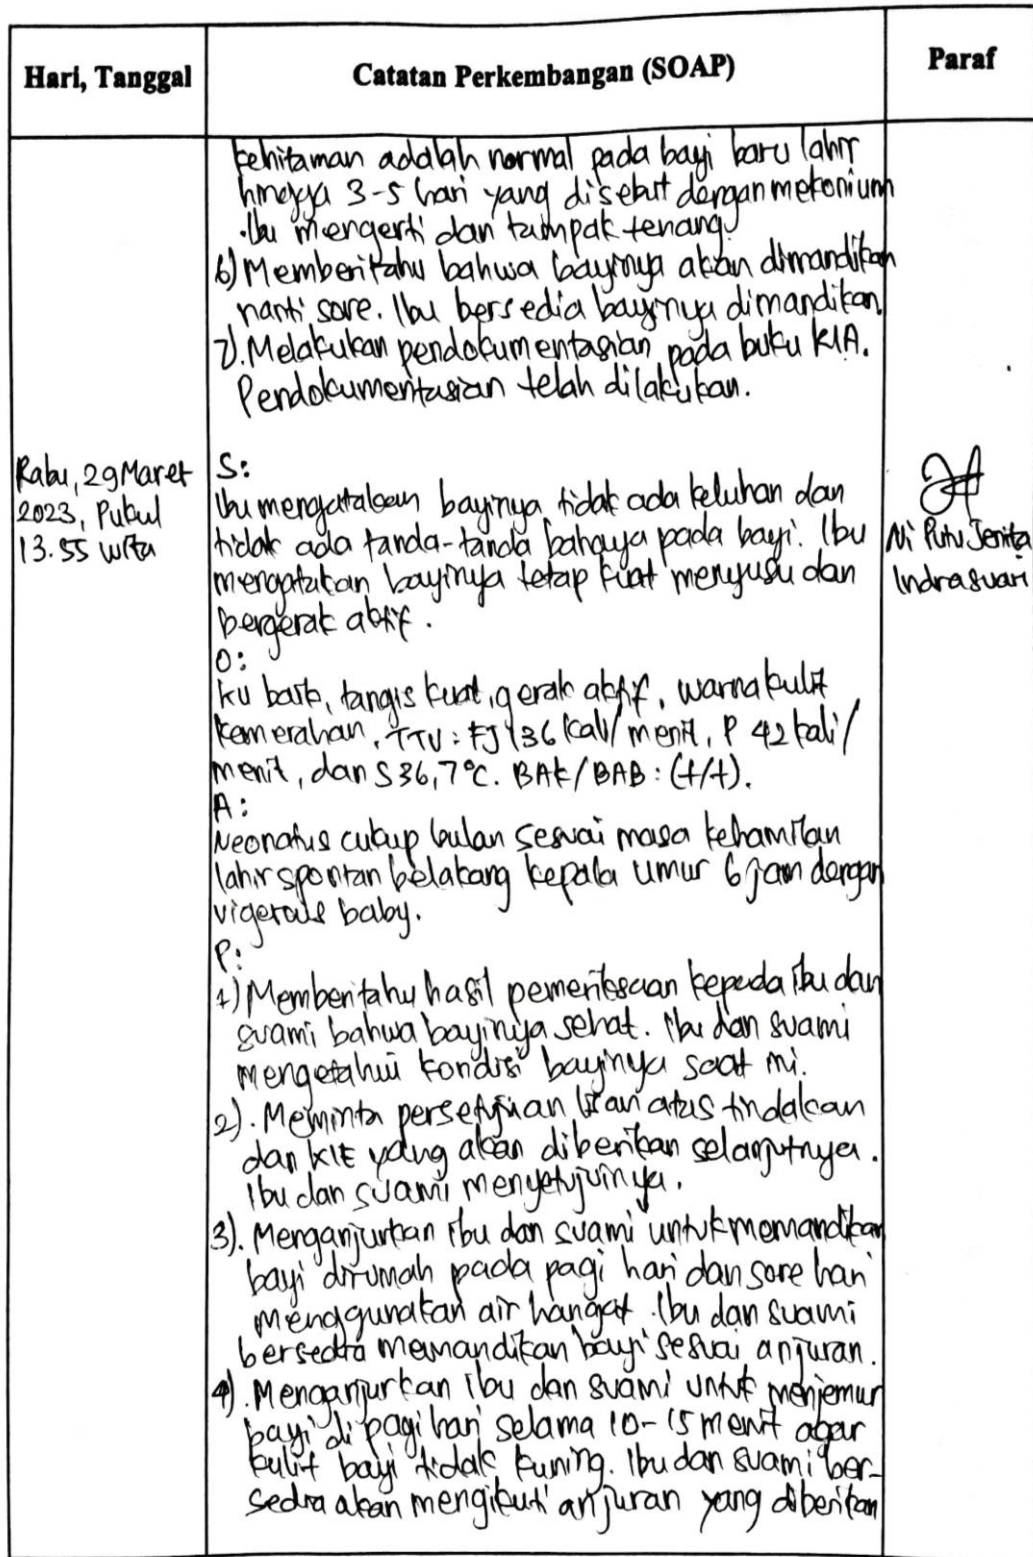 Hari, Tanggal
Catatan Perkembangan (SOAP)
Paraf
kehitaman adalah normal pada bayi baru lahir
hingga 3-5 hari yang disebut dengan mekonium
. Ibu mengerti dan tampak tenang.
6) Memberitahu bahwa bayinya akan dimandikan
nanti sore. Ibu bersedia bayinya dimandikan.
7). Melakukan pendokumentasian pada buku KIA.
Pendokumentasian telah dilakukan.
Rabu, 29 Maret
2023, Pukul
13.55 wita
S:
Ibu mengatakan bayinya tidak ada keluhan dan
tidak ada tanda-tanda bahaya pada bayi. Ibu
mengatakan bayinya tetap kuat menyusu dan
bergerak aktif.
O:
KU baik, tangis kuat, gerak aktif, warna kulit
kemerahan, TTV: FJ 136 kali/menit, P 42 kali/
menit, dan S 36,7°C. BAK/BAB: (+/+).
A:
Neonatus cukup bulan sesuai masa kehamilan
lahir spontan belakang kepala umur 6 jam dengan
vigerous baby.
P:
1) Memberitahu hasil pemeriksaan kepada ibu dan
suami bahwa bayinya sehat. Ibu dan suami
mengetahui kondisi bayinya saat ini.
2). Meminta persetujuan lisan atas tindakan
dan KIE yang akan diberikan selanjutnya.
Ibu dan suami menyetujuinya.
3). Menganjurkan ibu dan suami untuk memandikan
bayi dirumah pada pagi hari dan sore hari
menggunakan air hangat. Ibu dan suami
bersedia memandikan bayi sesuai anjuran.
4). Menganjurkan ibu dan suami untuk menjemur
bayi di pagi hari selama 10-15 menit agar
kulit bayi tidak kuning. Ibu dan suami ber-
sedia akan mengikuti anjuran yang diberikan
Ni Putu Jenita
Indrasuari